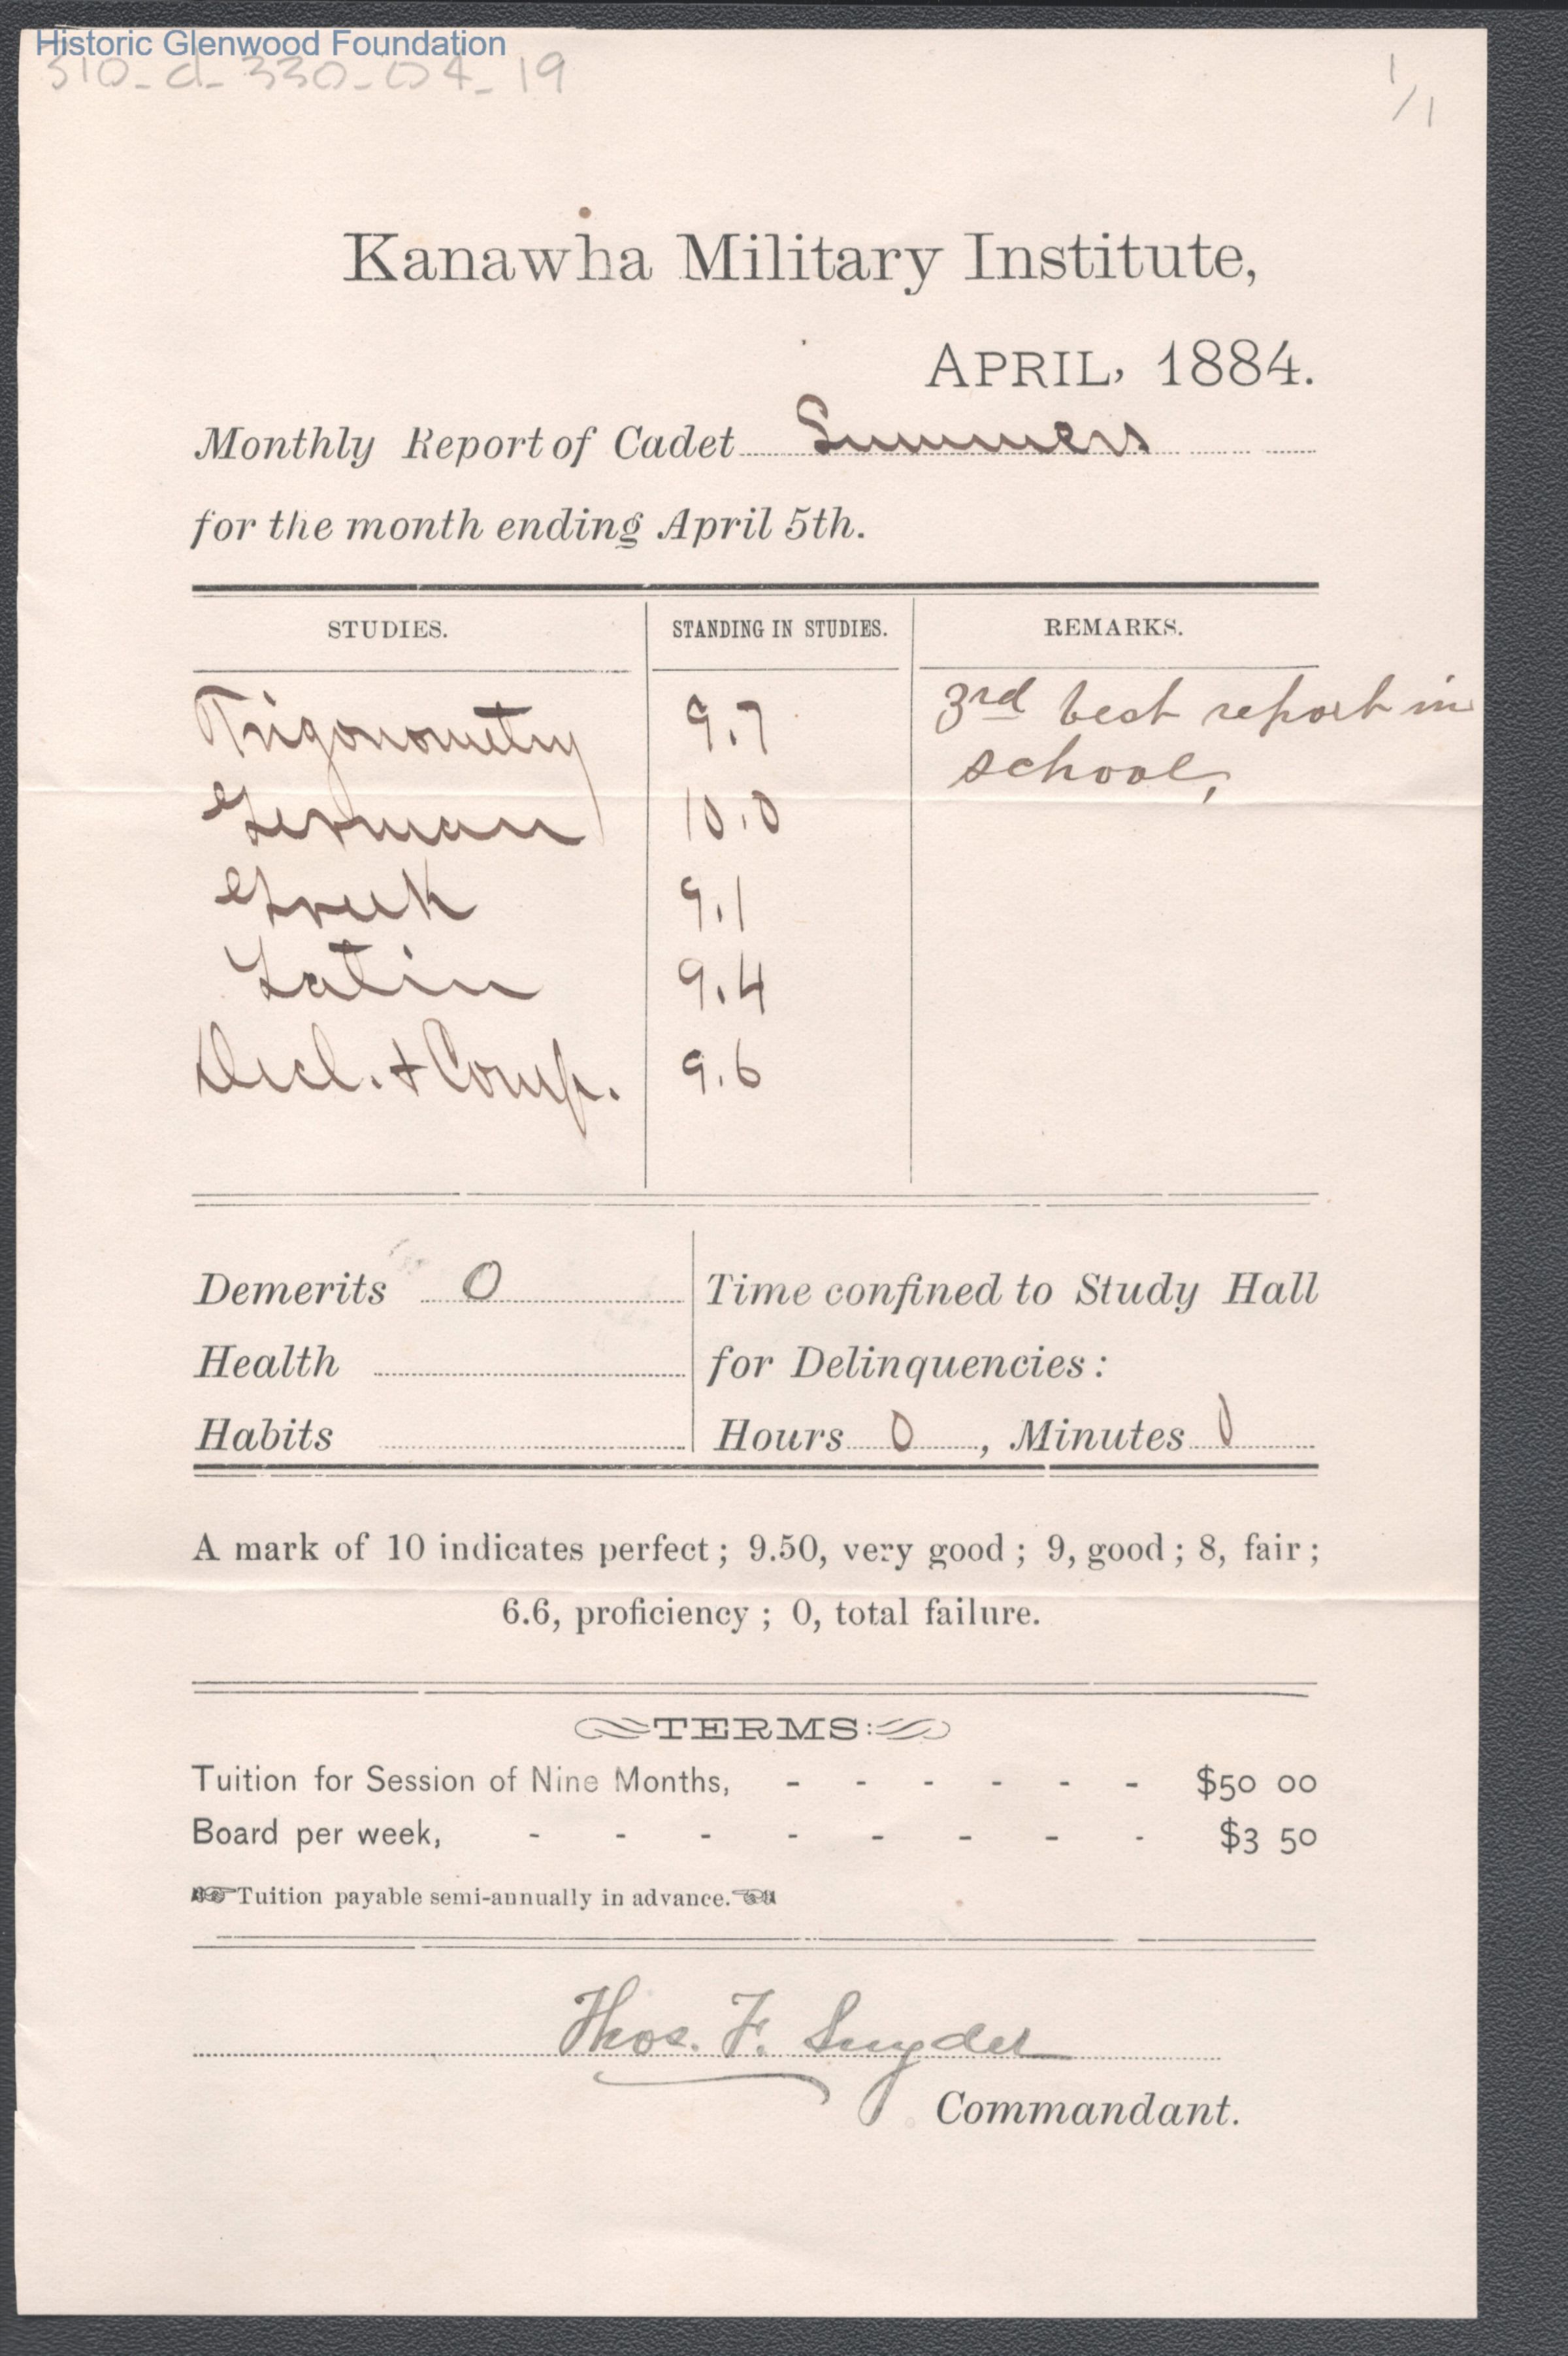 Historic Glenwood Foundation
310-d-330-04-19
1/1
Kanawha Military Institute,
APRIL, 1884.
Monthly Report of Cadet Summers
for the month ending April 5th.
STUDIES. STANDING IN STUDIES. REMARKS.
Trigonometry 9.7 3rd best report in
school,
German 10.0
Greek 9.1
Latin 9.4
Decl. + Comp. 9.6
Demerits 0 Time confined to Study Hall
Health for Delinquencies:
Habits Hours 0, Minutes 0
A mark of 10 indicates perfect; 9.50, very good; 9, good; 8, fair;
6.6, proficiency; 0, total failure.
TERMS:
Tuition for Session of Nine Months, - - - - - - $50 00
Board per week, - - - - - - - - $3 50
☞Tuition payable semi-annually in advance.☜
Thos. F. Snyder
Commandant.